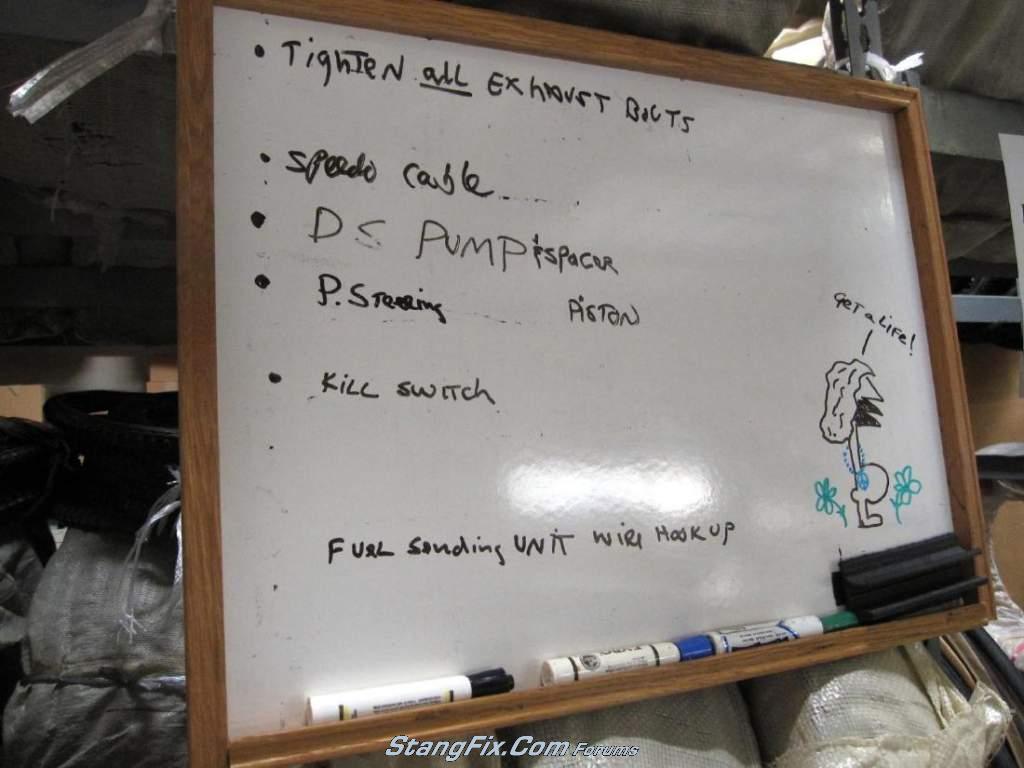 • Tighten all Exhaust Bolts
• Speedo Cable
• DS PUMP & SPACER
• P. Steering PISTON
Get a Life!
• Kill Switch
Fuel Sending UNIT Wire Hook up
StangFix.Com Forums